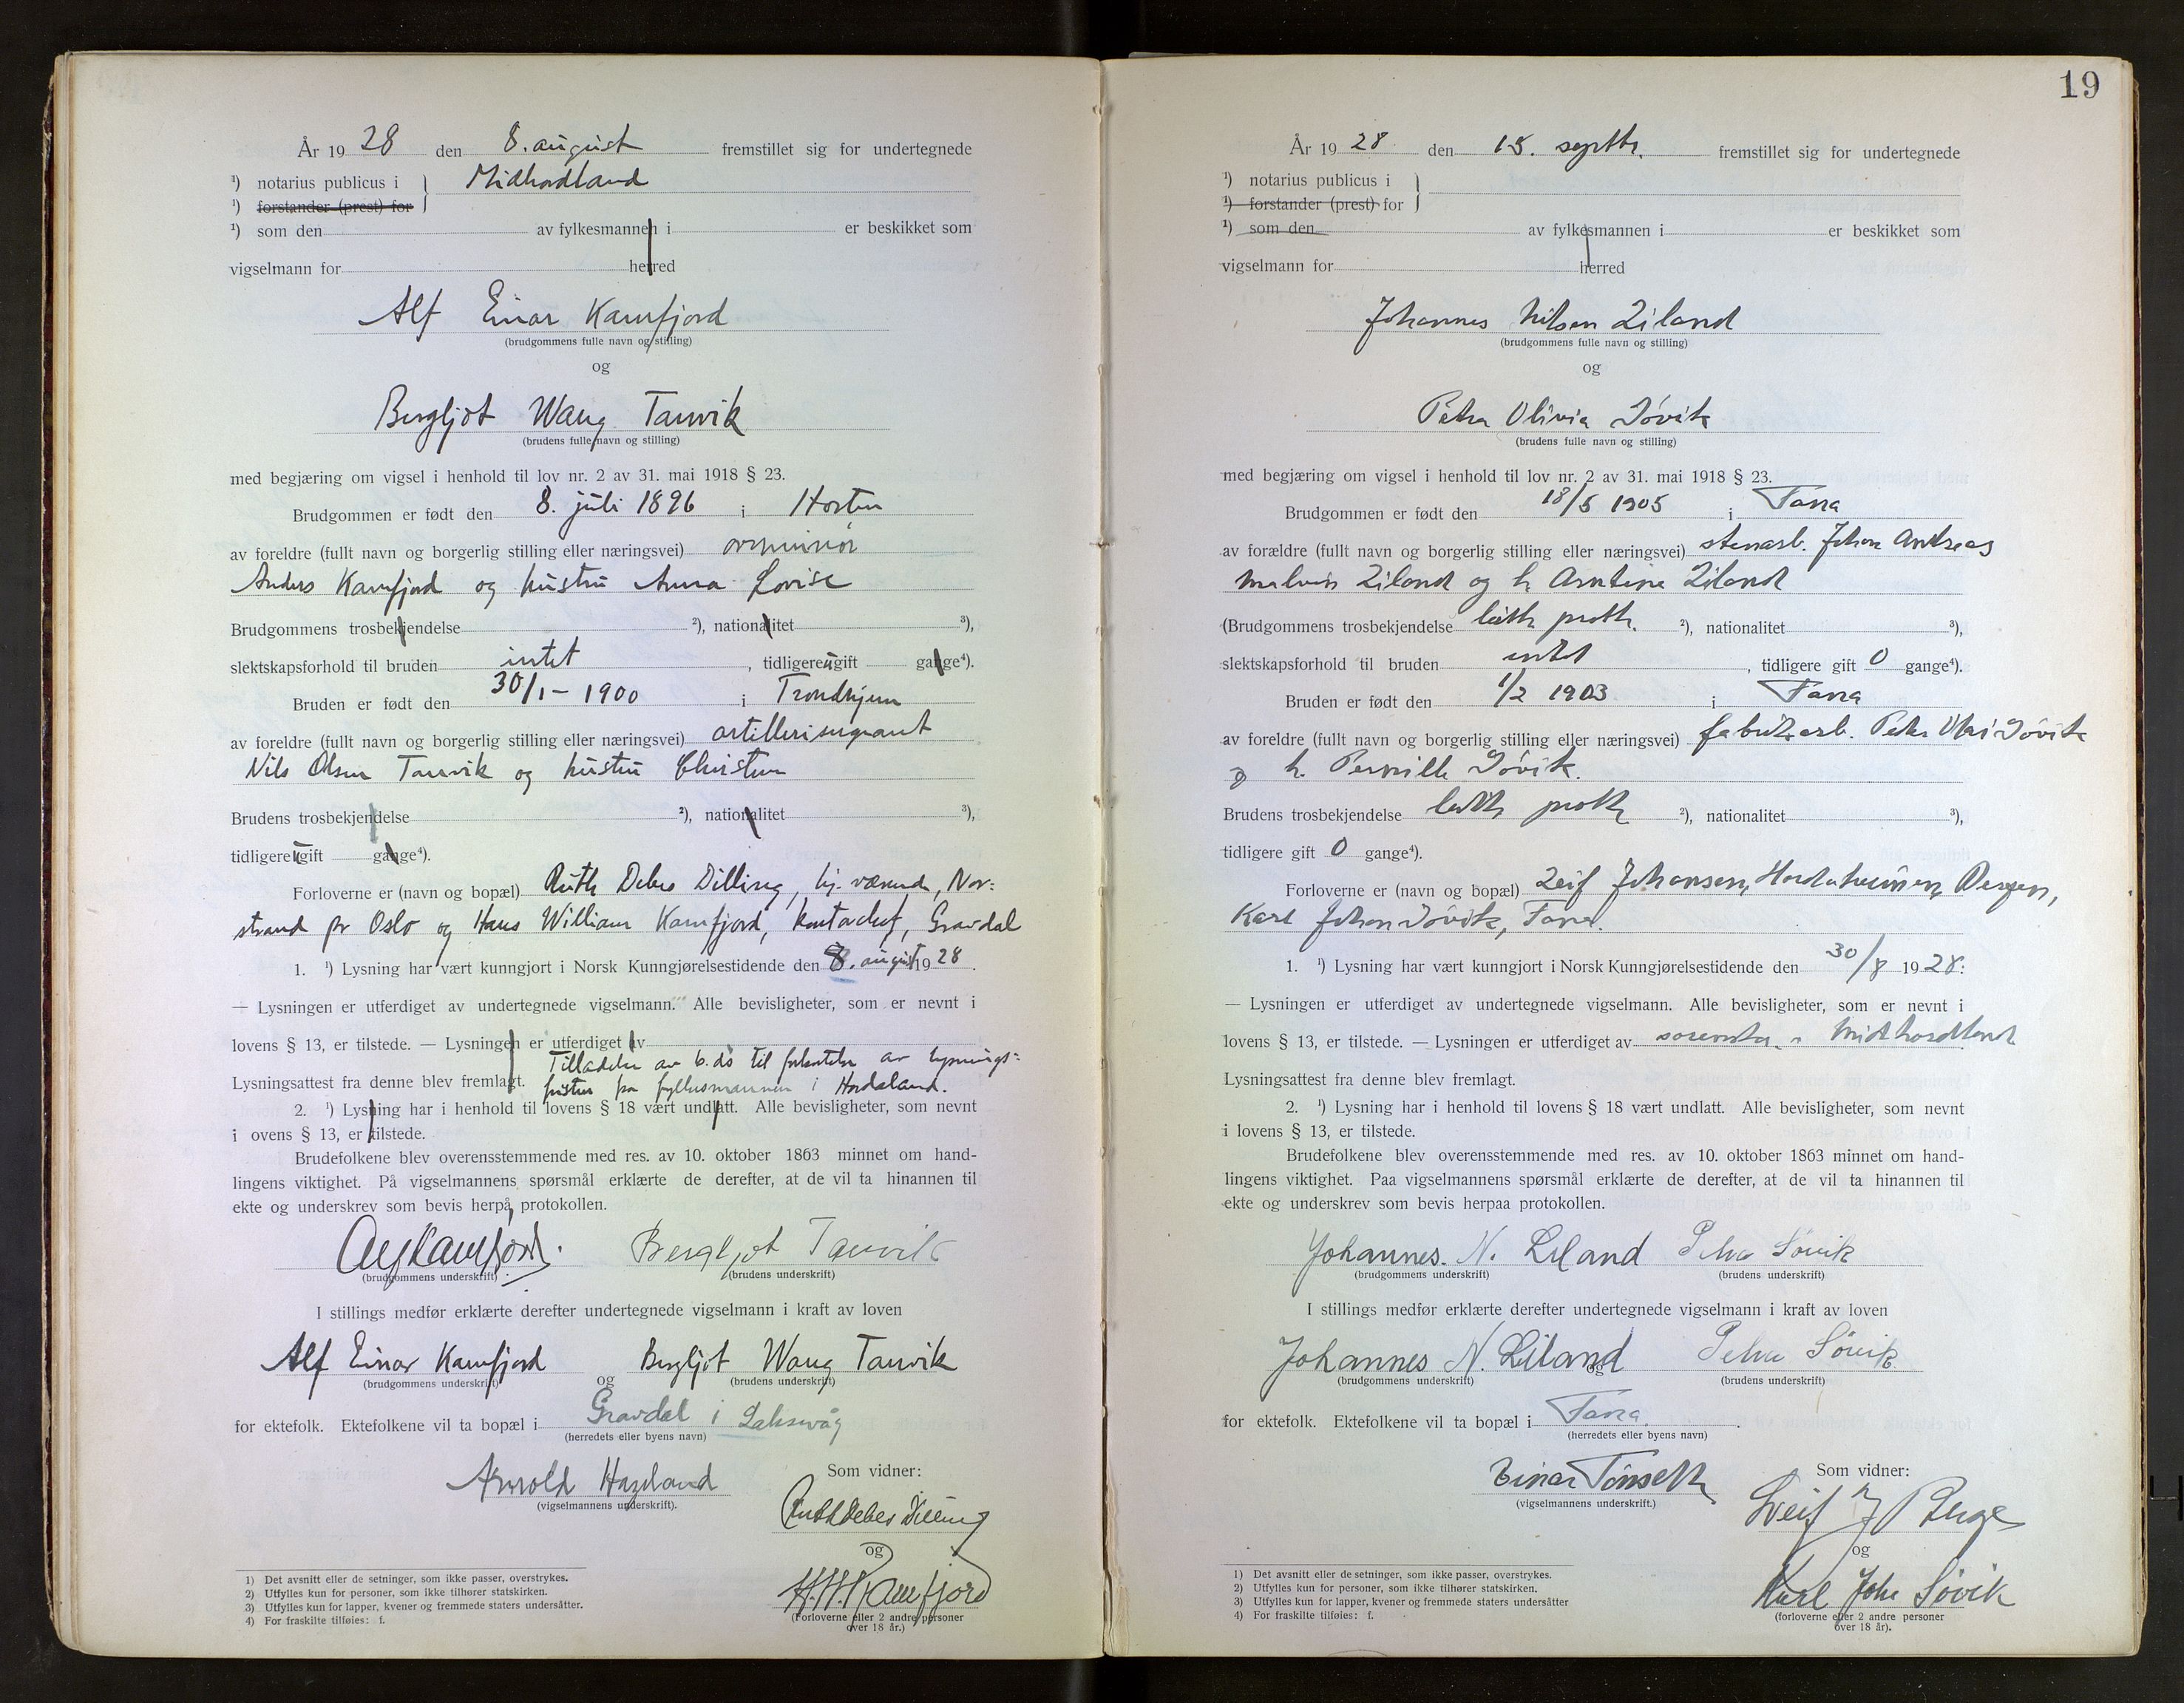 År 19 28 den 8. august fremstillet sig for undertegnede
¹) notarius publicus i Midhordland
¹) forstander (prest) for
¹) som den av fylkesmannen i er beskikket som
vigselmann for herred
Alf Einar Kamfjord
(brudgommens fulle navn og stilling)
og
Bergljot Wang Tanvik
(brudens fulle navn og stilling)
med begjæring om vigsel i henhold til lov nr. 2 av 31. mai 1918 § 23.
Brudgommen er født den 8. juli 1896 i Horten
av foreldre (fullt navn og borgerlig stilling eller næringsvei)
Anders Kamfjord og hustru Anna Lovise
Brudgommens trosbekjendelse ²), nationalitet ³),
slektskapsforhold til bruden intet, tidligere ugift gange⁴).
Bruden er født den 30/1 - 1900 i Trondhjem
av foreldre (fullt navn og borgerlig stilling eller næringsvei) artillerisergeant
Nils Olsen Tanvik og hustru Christine
Brudens trosbekjendelse ²), nationalitet ³),
tidligere ugift gange⁴).
Forloverne er (navn og bopæl) Ruth Debes Dilling, hj. værende, Nor-
strand pr Oslo og Hans William Kamfjord, kontorchef, Gravdal
1. ¹) Lysning har vært kunngjort i Norsk Kunngjørelsestidende den 8. august 19 28.
— Lysningen er utferdiget av undertegnede vigselmann. Alle bevisligheter, som er nevnt i
lovens § 13, er tilstede. — Lysningen er utferdiget av
Tilladelse av 6. ds til forkortelse av lysnings-
Lysningsattest fra denne blev fremlagt. fristen fra fylkesmannen i Hordaland.
2. ¹) Lysning har i henhold til lovens § 18 vært undlatt. Alle bevisligheter, som nevnt
i ovens § 13, er tilstede.
Brudefolkene blev overensstemmende med res. av 10. oktober 1863 minnet om hand-
lingens viktighet. På vigselmannens spørsmål erklærte de derefter, at de vil ta hinannen til
ekte og underskrev som bevis herpå protokollen.
Alf Kamfjord. Bergljot Tanvik
(brudgommens underskrift) (brudens underskrift)
I stillings medfør erklærte derefter undertegnede vigselmann i kraft av loven
Alf Einar Kamfjord og Bergljot Wang Tanvik
(brudgommens underskrift) (brudens underskrift)
for ektefolk. Ektefolkene vil ta bopæl i Gravdal i Laksevåg
(herredets eller byens navn)
Arnold Hazeland
(vigselmannens underskrift).
Som vidner:
Ruth Debes Dilling
og
H.W. Kamfjord
(Forloverne eller 2 andre personer
over 18 år.)
1) Det avsnitt eller de setninger, som ikke passer, overstrykes.
2) Utfylles kun for personer, som ikke tilhører statskirken.
3) Utfylles kun for lapper, kvener og fremmede staters undersåtter.
4) For fraskilte tilføies: f.
19
År 19 28 den 15. septbr. fremstillet sig for undertegnede
¹) notarius publicus i
¹) forstander (prest) for
¹) som den av fylkesmannen i er beskikket som
vigselmann for herred
Johannes Nilsen Liland
(brudgommens fulle navn og stilling)
og
Petra Olivia Søvik
(brudens fulle navn og stilling)
med begjæring om vigsel i henhold til lov nr. 2 av 31. mai 1918 § 23.
Brudgommen er født den 18/5 1905 i Fana
av forældre (fullt navn og borgerlig stilling eller næringsvei) stenarb. Johan Andreas
Malvin Liland og h. Arntine Liland
(Brudgommens trosbekjendelse luth prott. ²), nationalitet ³),
slektskapsforhold til bruden intet, tidligere gift 0 gange⁴).
Bruden er født den 1/2 1903 i Fana
av foreldre (fullt navn og borgerlig stilling eller næringsvei) fabrikarb. Peder Søvik
og h. Pernille Søvik.
Brudens trosbekjendelse luth prott ²), nationalitet ³),
tidligere gift 0 gange⁴).
Forloverne er (navn og bopæl) Leif Johansen, Hordaheimen, Bergen,
Karl Johan Søvik, Fana.
1. ¹) Lysning har vært kunngjort i Norsk Kunngjørelsestidende den 30/8 19 28.
— Lysningen er utferdiget av undertegnede vigselmann. Alle bevisligheter, som er nevnt i
lovens § 13, er tilstede. — Lysningen er utferdiget av sorenskr. i Midthordland
Lysningsattest fra denne blev fremlagt.
2. ¹) Lysning har i henhold til lovens § 18 vært undlatt. Alle bevisligheter, som nevnt
i lovens § 13, er tilstede.
Brudefolkene blev overensstemmende med res. av 10. oktober 1863 minnet om hand-
lingens viktighet. Paa vigselmannens spørsmål erklærte de derefter, at de vil ta hinannen til
ekte og underskrev som bevis herpaa protokollen.
Johannes. N. Liland Petra Søvik
(brudgommens underskrift) (brudens underskrift)
I stillings medfør erklærte derefter undertegnede vigselmann i kraft av loven
Johannes N. Liland og Petra Søvik
(brudgommens underskrift) (brudens underskrift)
for ektefolk. Ektefolkene vil ta bopæl i Fana.
(herredets eller byens navn)
Einar Tønseth
(vigselmannens underskrift.)
Som vidner:
Leif J Berge
og
Karl Joha Søvik
(forloverne eller 2 andre personer
over 18 år).
1) Det avsnitt eller de setninger, som ikke passer, overstrykes.
2) Utfylles kun for personer, som ikke tilhører statskirken.
3) Utfylles kun for lapper, kvener og fremmede staters undersåtter
4) For fraskilte tilføies: f.